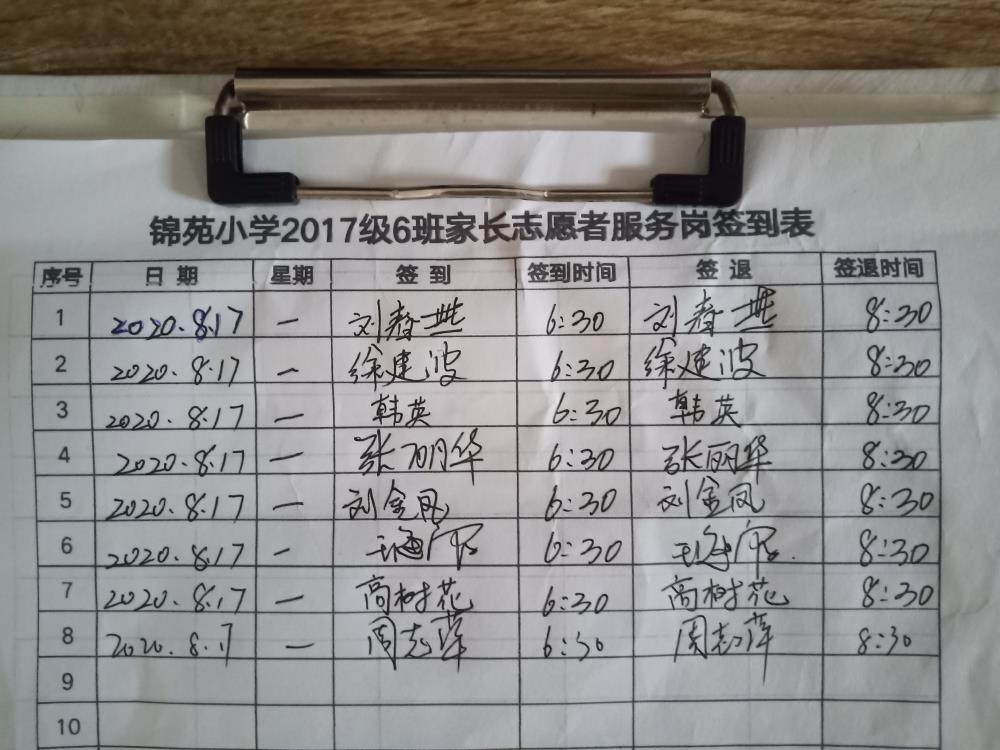 锦苑小学2017级6班家长志愿者服务岗签到表
序号 日 期 星期 签 到 签到时间 签 退 签退时间
1 2020.8.17 一 刘春燕 6:30 刘春燕 8:30
2 2020.8.17 一 徐建波 6:30 徐建波 8:30
3 2020.8.17 一 韩英 6:30 韩英 8:30
4 2020.8.17 一 张丽华 6:30 张丽华 8:30
5 2020.8.17 一 刘金凤 6:30 刘金凤 8:30
6 2020.8.17 一 6:30 8:30
7 2020.8.17 一 高树花 6:30 高树花 8:30
8 2020.8.17 一 周志萍 6:30 周志萍 8:30
9
10